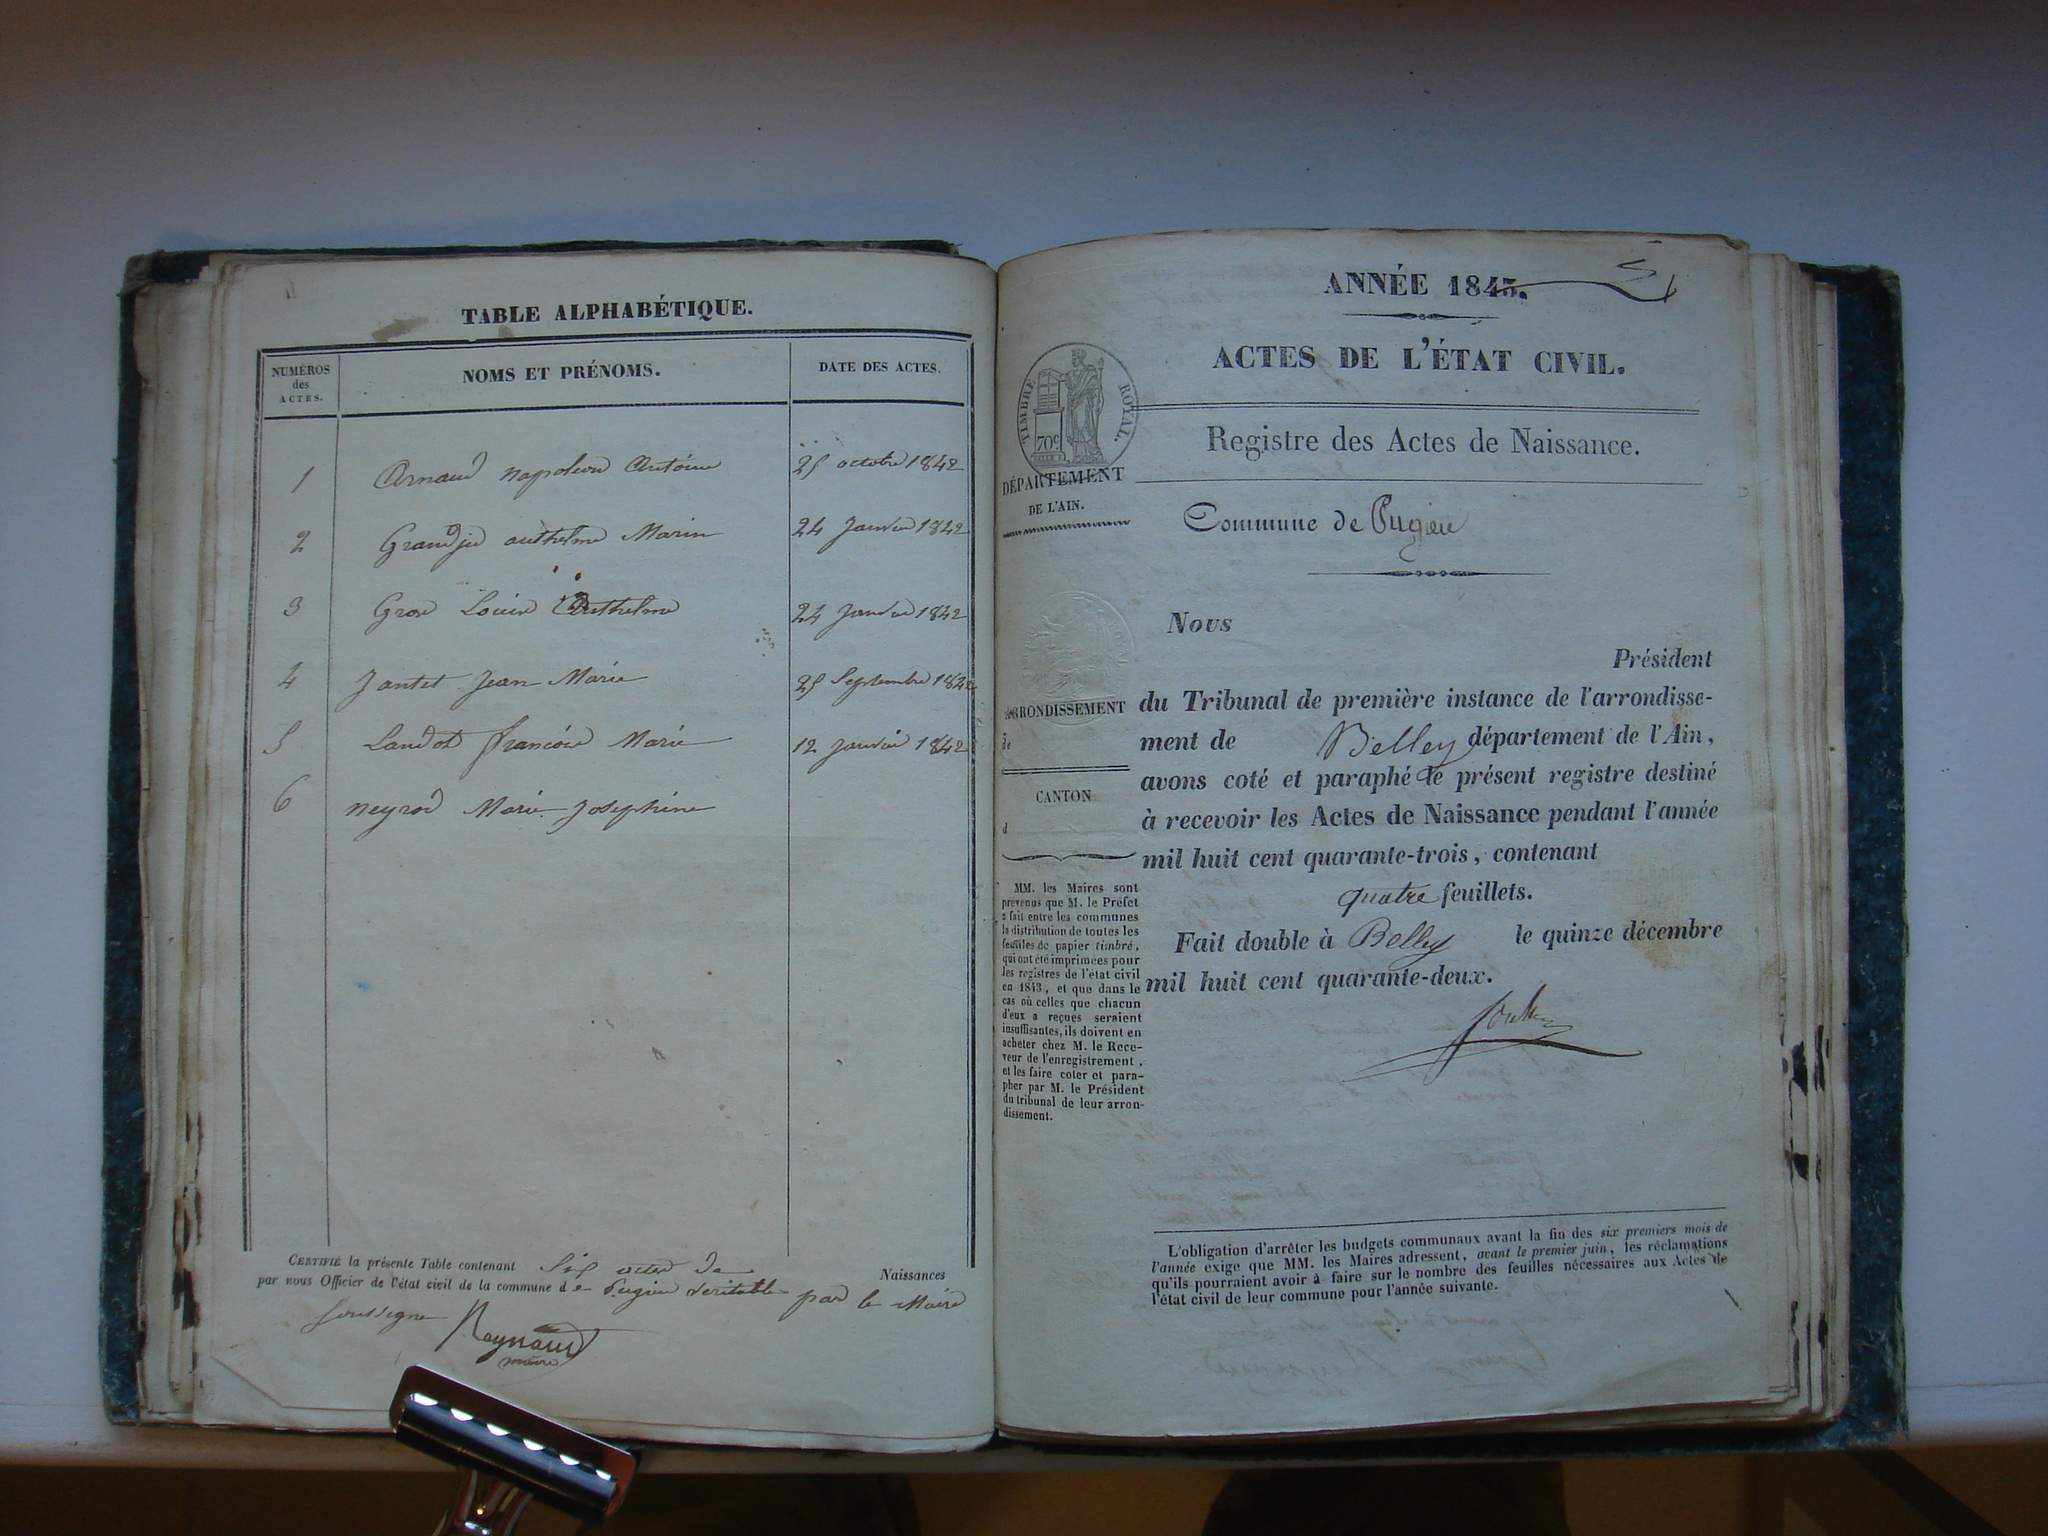 TABLE ALPHABÉTIQUE.
NUMÉROS
des
ACTES.
NOMS ET PRÉNOMS.
DATE DES ACTES.
1 Arnaud napoleon Antoine 25 octobre 1842
2 Grandjú anthelme Marin 24 Janvier 1842
3 Gros Louise Anthelme 24 Janvier 1842
4 Jantet Jean Marie 25 Septembre 1842
5 Landot françoise Marie 12 janvier 1842
6 neyrod Marie Josephine
CERTIFIÉ la présente Table contenant Six actes de Naissances
par nous Officier de l'état civil de la commune de Pugieu veritable par le Maire
soussigné Reynaud
maire
ANNÉE 1843.
ACTES DE L'ÉTAT CIVIL.
TIMBRE ROYAL.
70c
Registre des Actes de Naissance.
DÉPARTEMENT
DE L'AIN.
Commune de Pugieu
Nous
Président
du Tribunal de première instance de l'arrondisse-
ment de Belley département de l'Ain,
avons coté et paraphé le présent registre destiné
à recevoir les Actes de Naissance pendant l'année
mil huit cent quarante-trois, contenant
quatre feuillets.
Fait double à Belley le quinze décembre
mil huit cent quarante-deux.
ARRONDISSEMENT
de
CANTON
d
MM. les Maires sont
prévenus que M. le Préfet
a fait entre les communes
la distribution de toutes les
feuilles de papier timbré,
qui ont été imprimées pour
les registres de l'état civil
en 1843, et que dans le
cas où celles que chacun
d'eux a reçues seraient
insuffisantes, ils doivent en
acheter chez M. le Rece-
veur de l'enregistrement,
et les faire coter et para-
pher par M. le Président
du tribunal de leur arron-
dissement.
L'obligation d'arrêter les budgets communaux avant la fin des six premiers mois de
l'année exige que MM. les Maires adressent, avant le premier juin, les réclamations
qu'ils pourraient avoir à faire sur le nombre des feuilles nécessaires aux Actes de
l'état civil de leur commune pour l'année suivante.